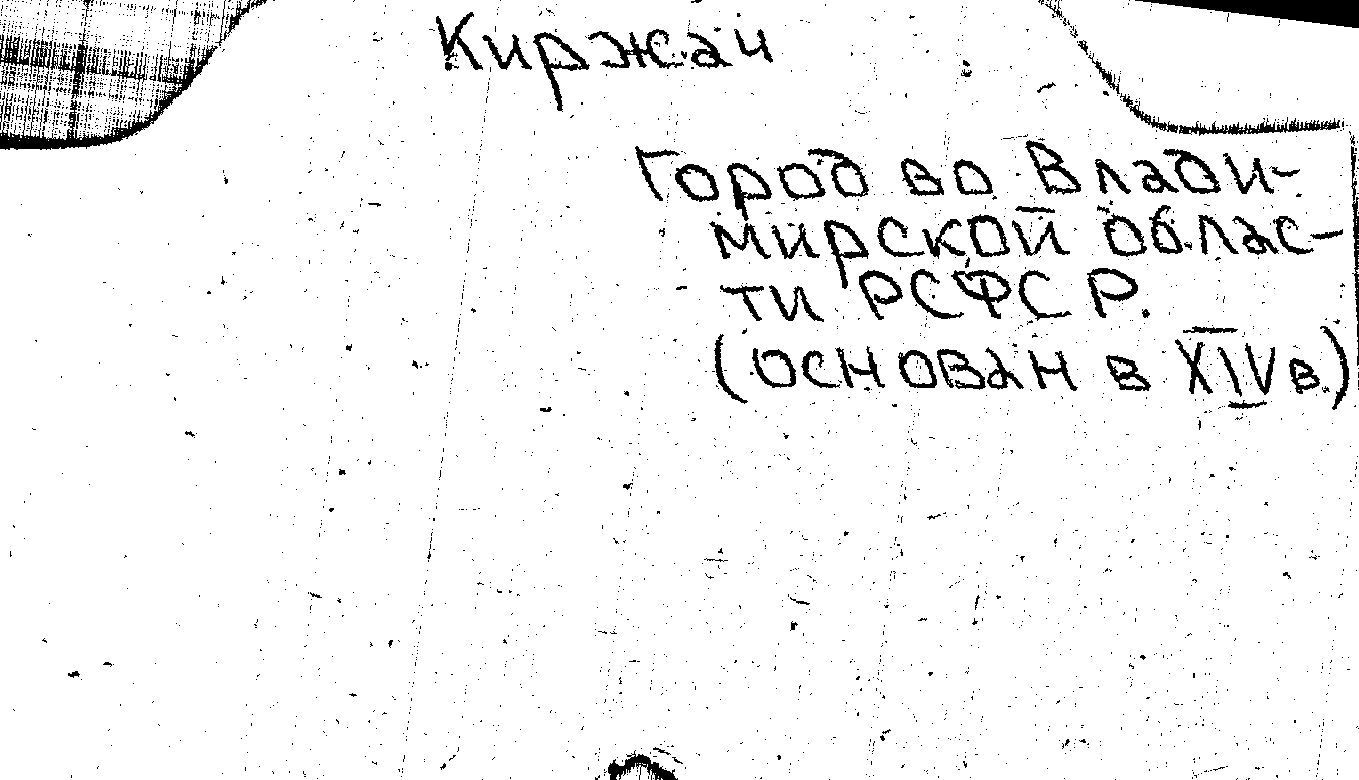 Киржач
Город во Влади-
мирской облас-
ти РСФСР.
(основан в XIV в.)